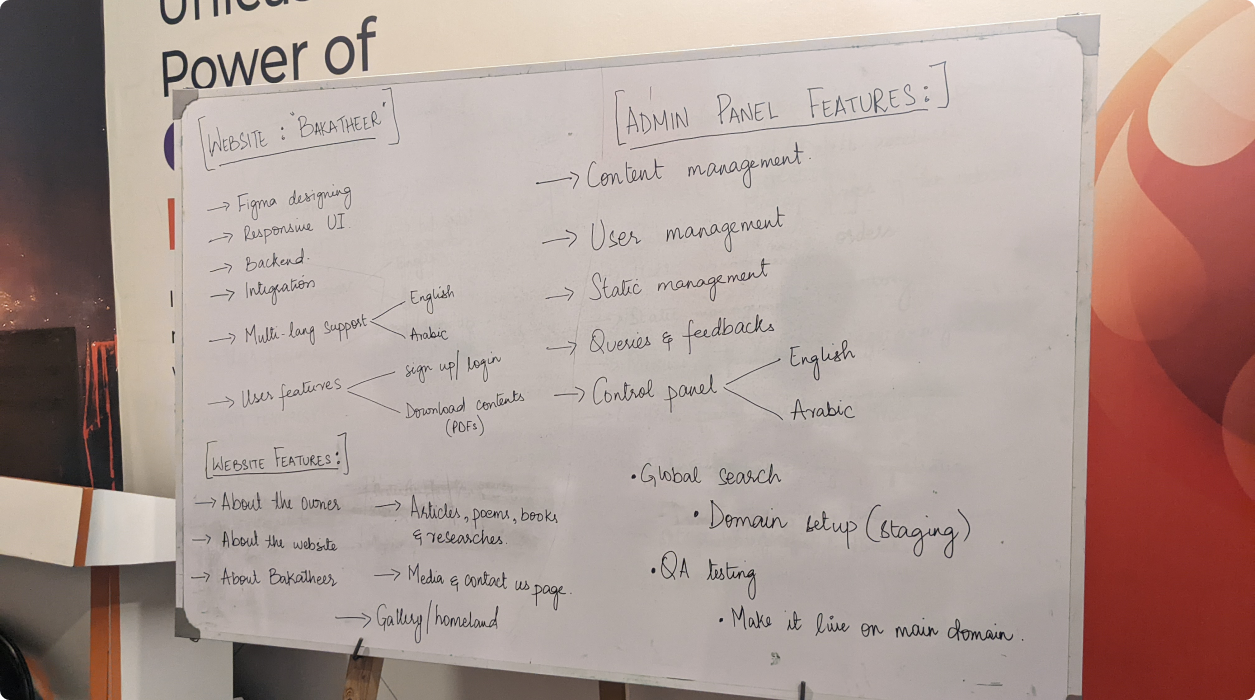 Power of
[WEBSITE : "BAKATHEER"]
→ Figma designing
→ Responsive UI
→ Backend.
→ Integration
→ Multi-lang support
English
Arabic
→ User features
sign up/login
Download contents
(PDFs)
[WEBSITE FEATURES:]
→ About the owner
→ About the website
→ About Bakatheer
→ Articles, poems, books
& researches.
→ Media & contact us page.
→ Gallery/homeland
[ADMIN PANEL FEATURES:]
→ Content management.
→ User management
→ Static management
→ Queries & feedbacks
→ Control panel
English
Arabic
• Global search
• Domain setup (staging)
• QA testing
• Make it live on main domain.